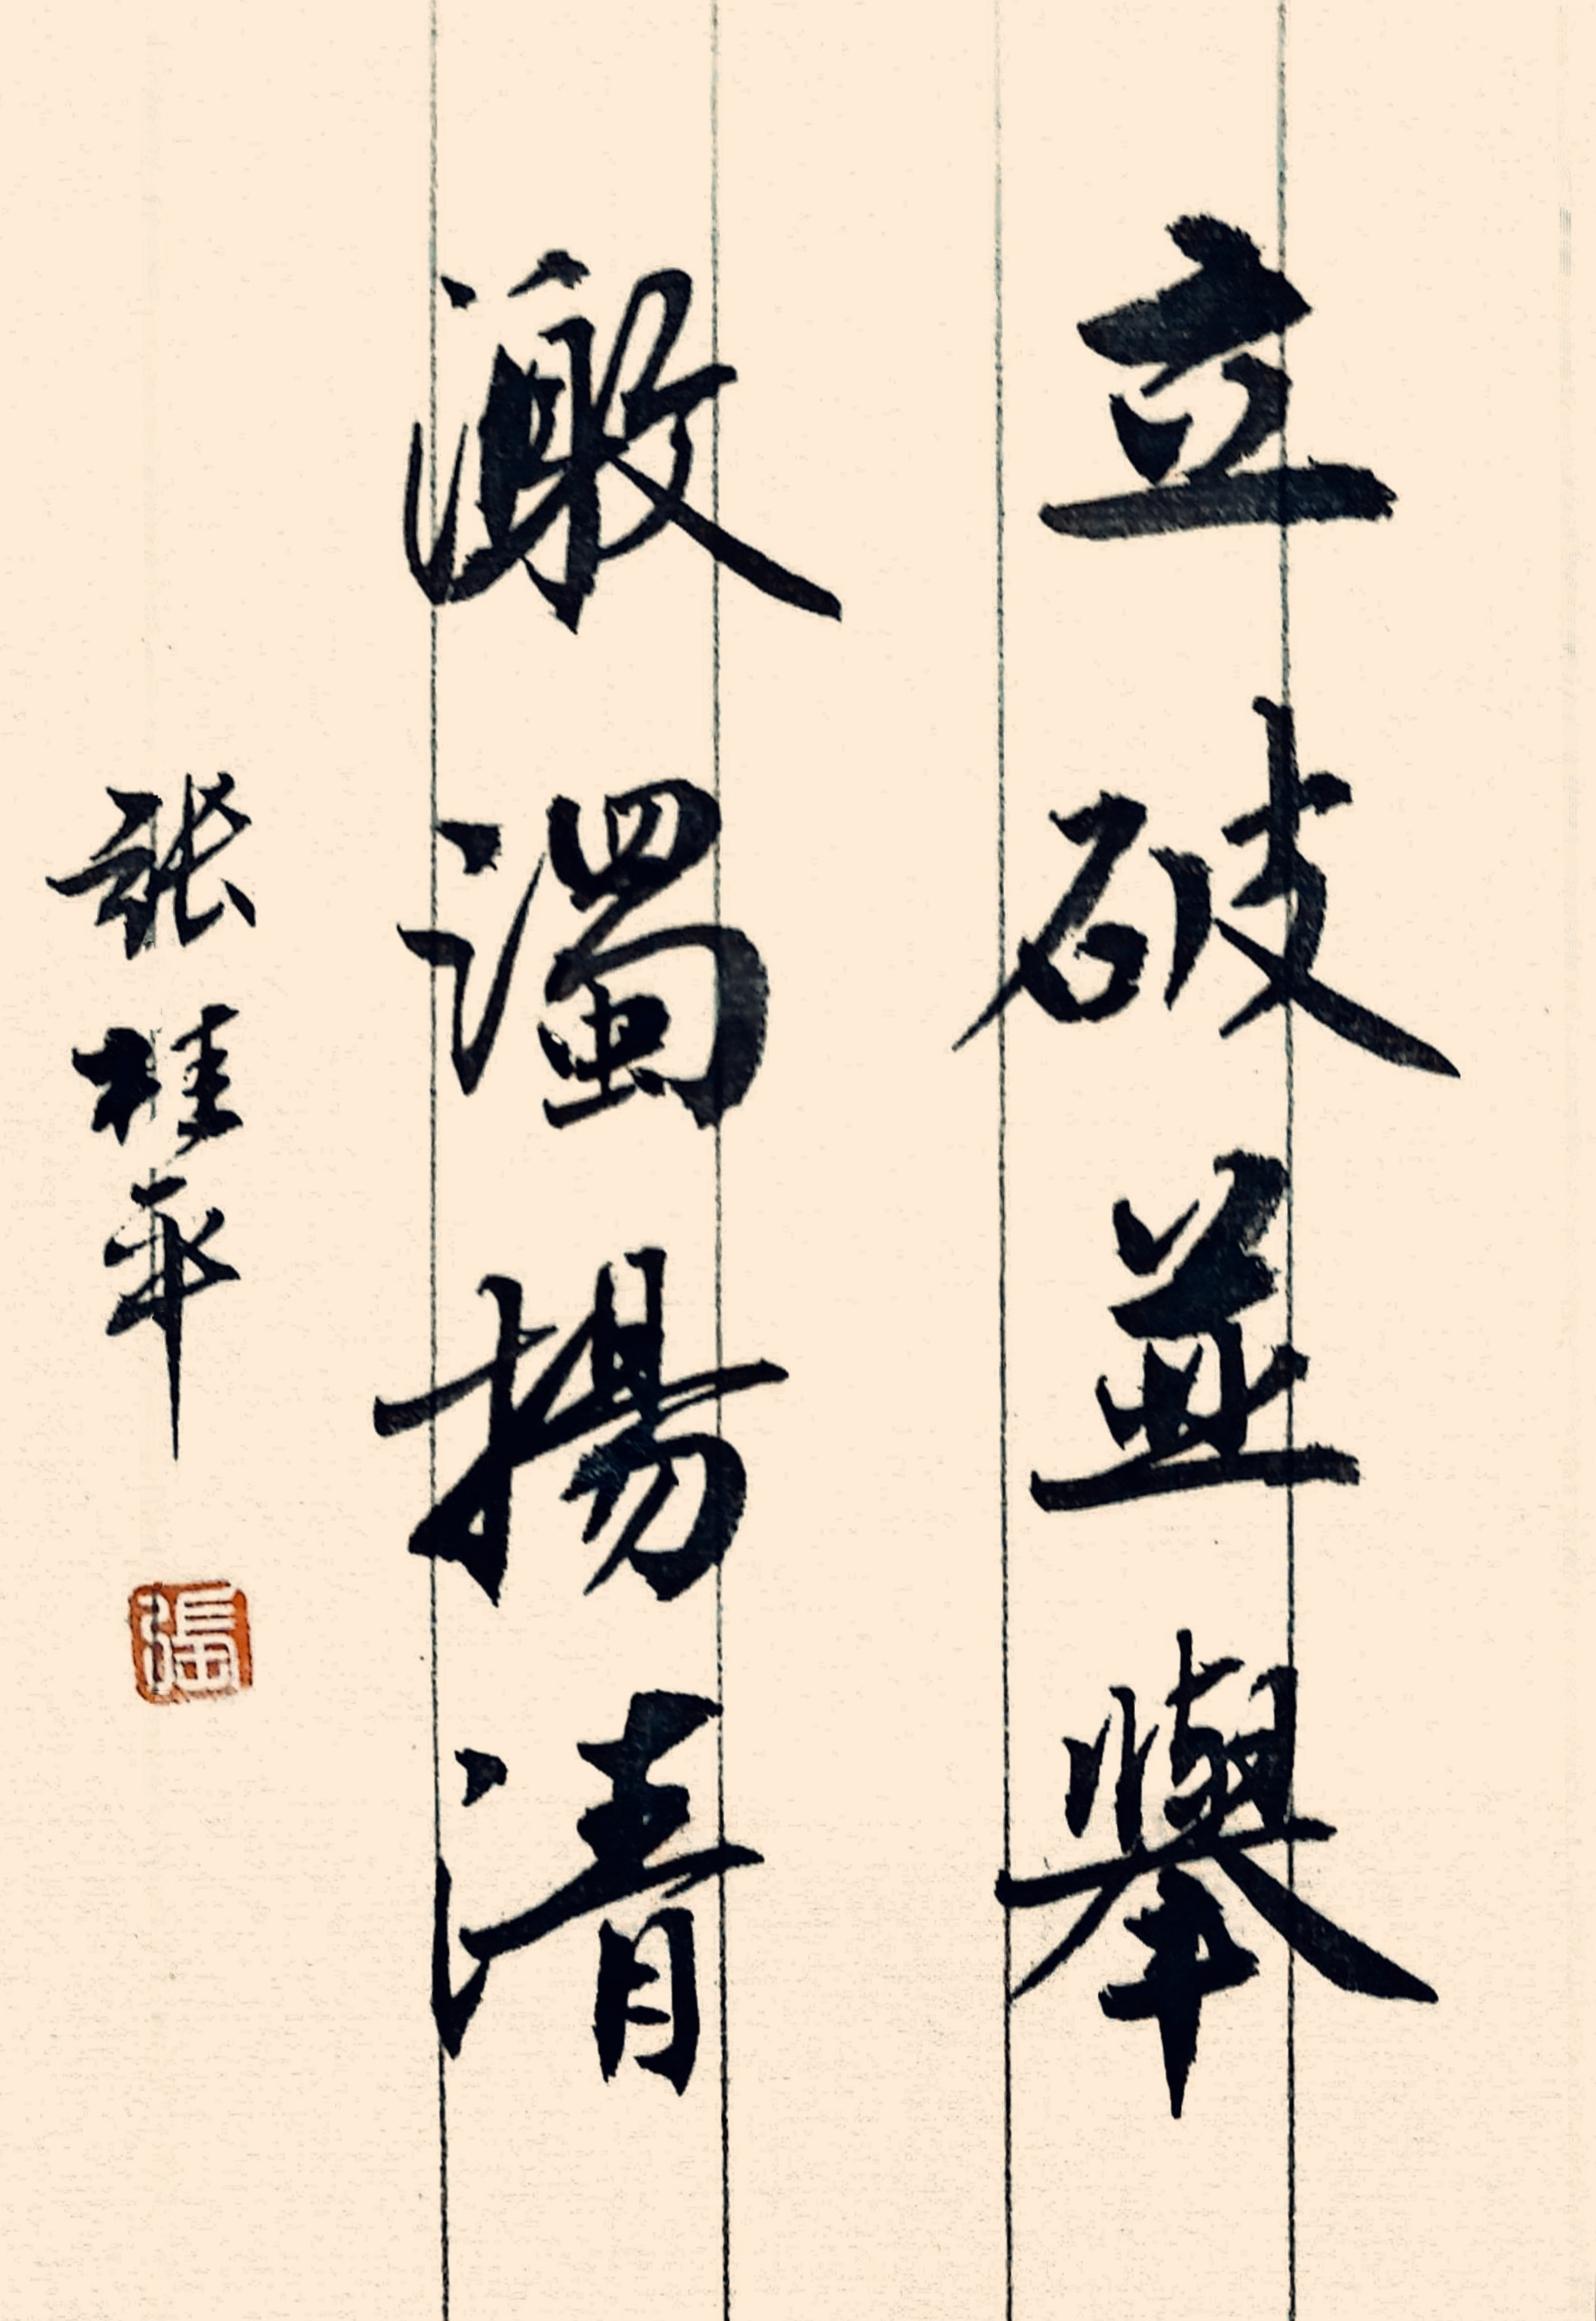 立破並舉
激濁揚清
張桂平
張